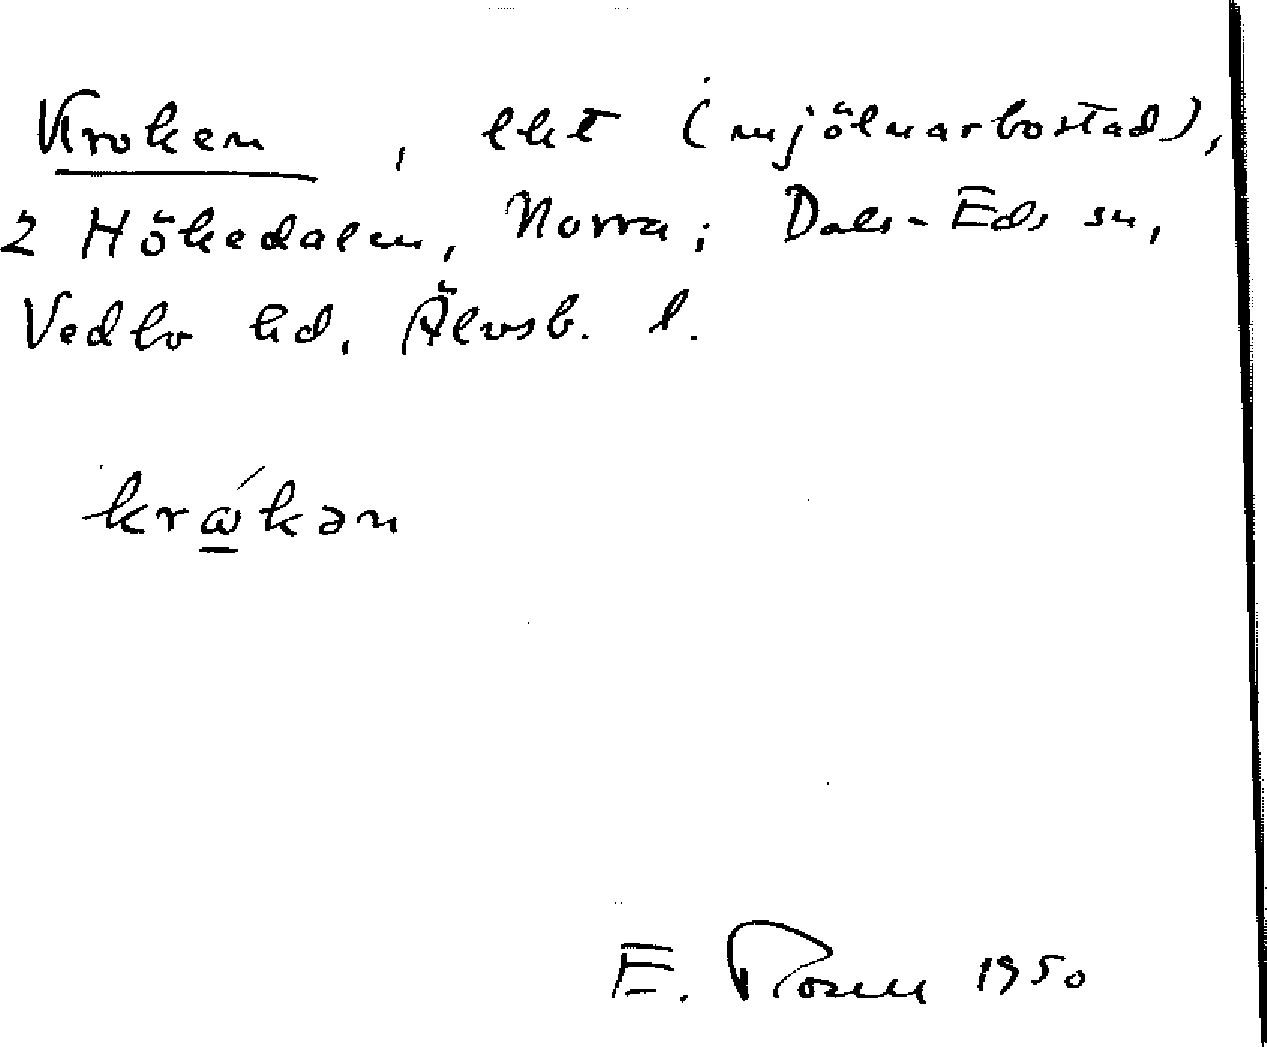 Kroken, lht (mjölnarbostad),
2 Hökedalen, Norra; Dals-Eds sn,
Vedbo hd, Älvsb. l.
krώ̲kən
E. Rosen 1950